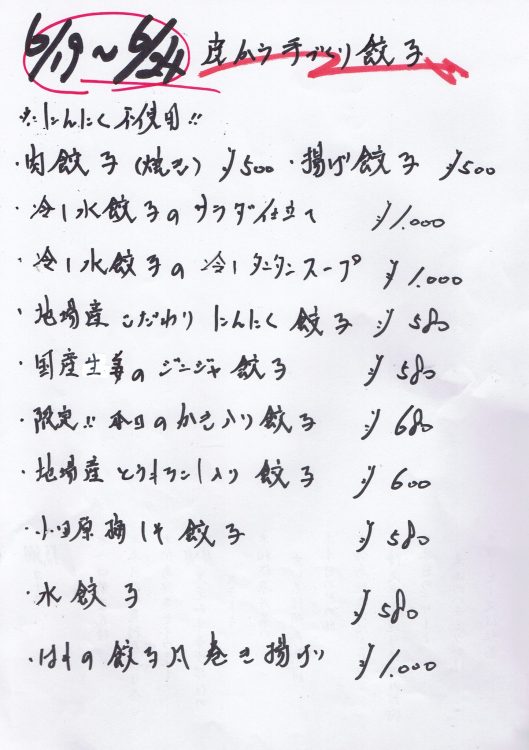 6/19～6/24 皮から手づくり餃子
※にんにく不使用!!
・肉餃子（焼き）¥500 ・揚げ餃子 ¥500
・冷し水餃子のサラダ仕立て ¥1.000
・冷し水餃子の冷しタンタンスープ ¥1.000
・地場産こだわりにんにく餃子 ¥580
・国産生姜のジンジャ餃子 ¥580
・限定!!本日のかき入り餃子 ¥680
・地場産とうもろこし入り餃子 ¥600
・小田原梅しそ餃子 ¥580
・水餃子 ¥580
・はもの餃子風巻き揚げ ¥1.000